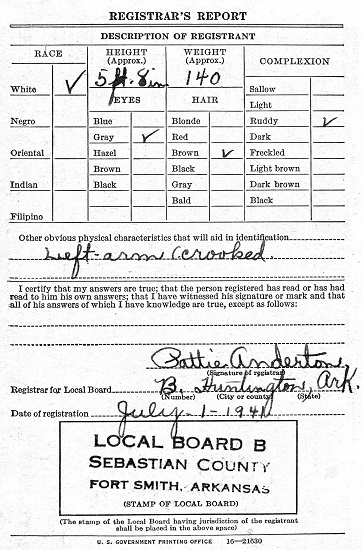 REGISTRAR'S REPORT
DESCRIPTION OF REGISTRANT
RACE HEIGHT (Approx.) WEIGHT (Approx.) COMPLEXION
5 ft. 8 in 140
White ✓ EYES HAIR Sallow
Light
Negro Blue Blonde Ruddy ✓
Gray ✓ Red Dark
Oriental Hazel Brown ✓ Freckled
Brown Black Light brown
Indian Black Gray Dark brown
Bald Black
Filipino
Other obvious physical characteristics that will aid in identification
Left-arm Crooked.
I certify that my answers are true; that the person registered has read or has had
read to him his own answers; that I have witnessed his signature or mark and that
all of his answers of which I have knowledge are true, except as follows:
Pattie Anderton
(Signature of registrar)
Registrar for Local Board B. Huntington, Ark.
(Number) (City or county) (State)
Date of registration July-1-1941
LOCAL BOARD B
SEBASTIAN COUNTY
FORT SMITH, ARKANSAS
(STAMP OF LOCAL BOARD)
(The stamp of the Local Board having jurisdiction of the registrant
shall be placed in the above space)
U. S. GOVERNMENT PRINTING OFFICE 16—21630